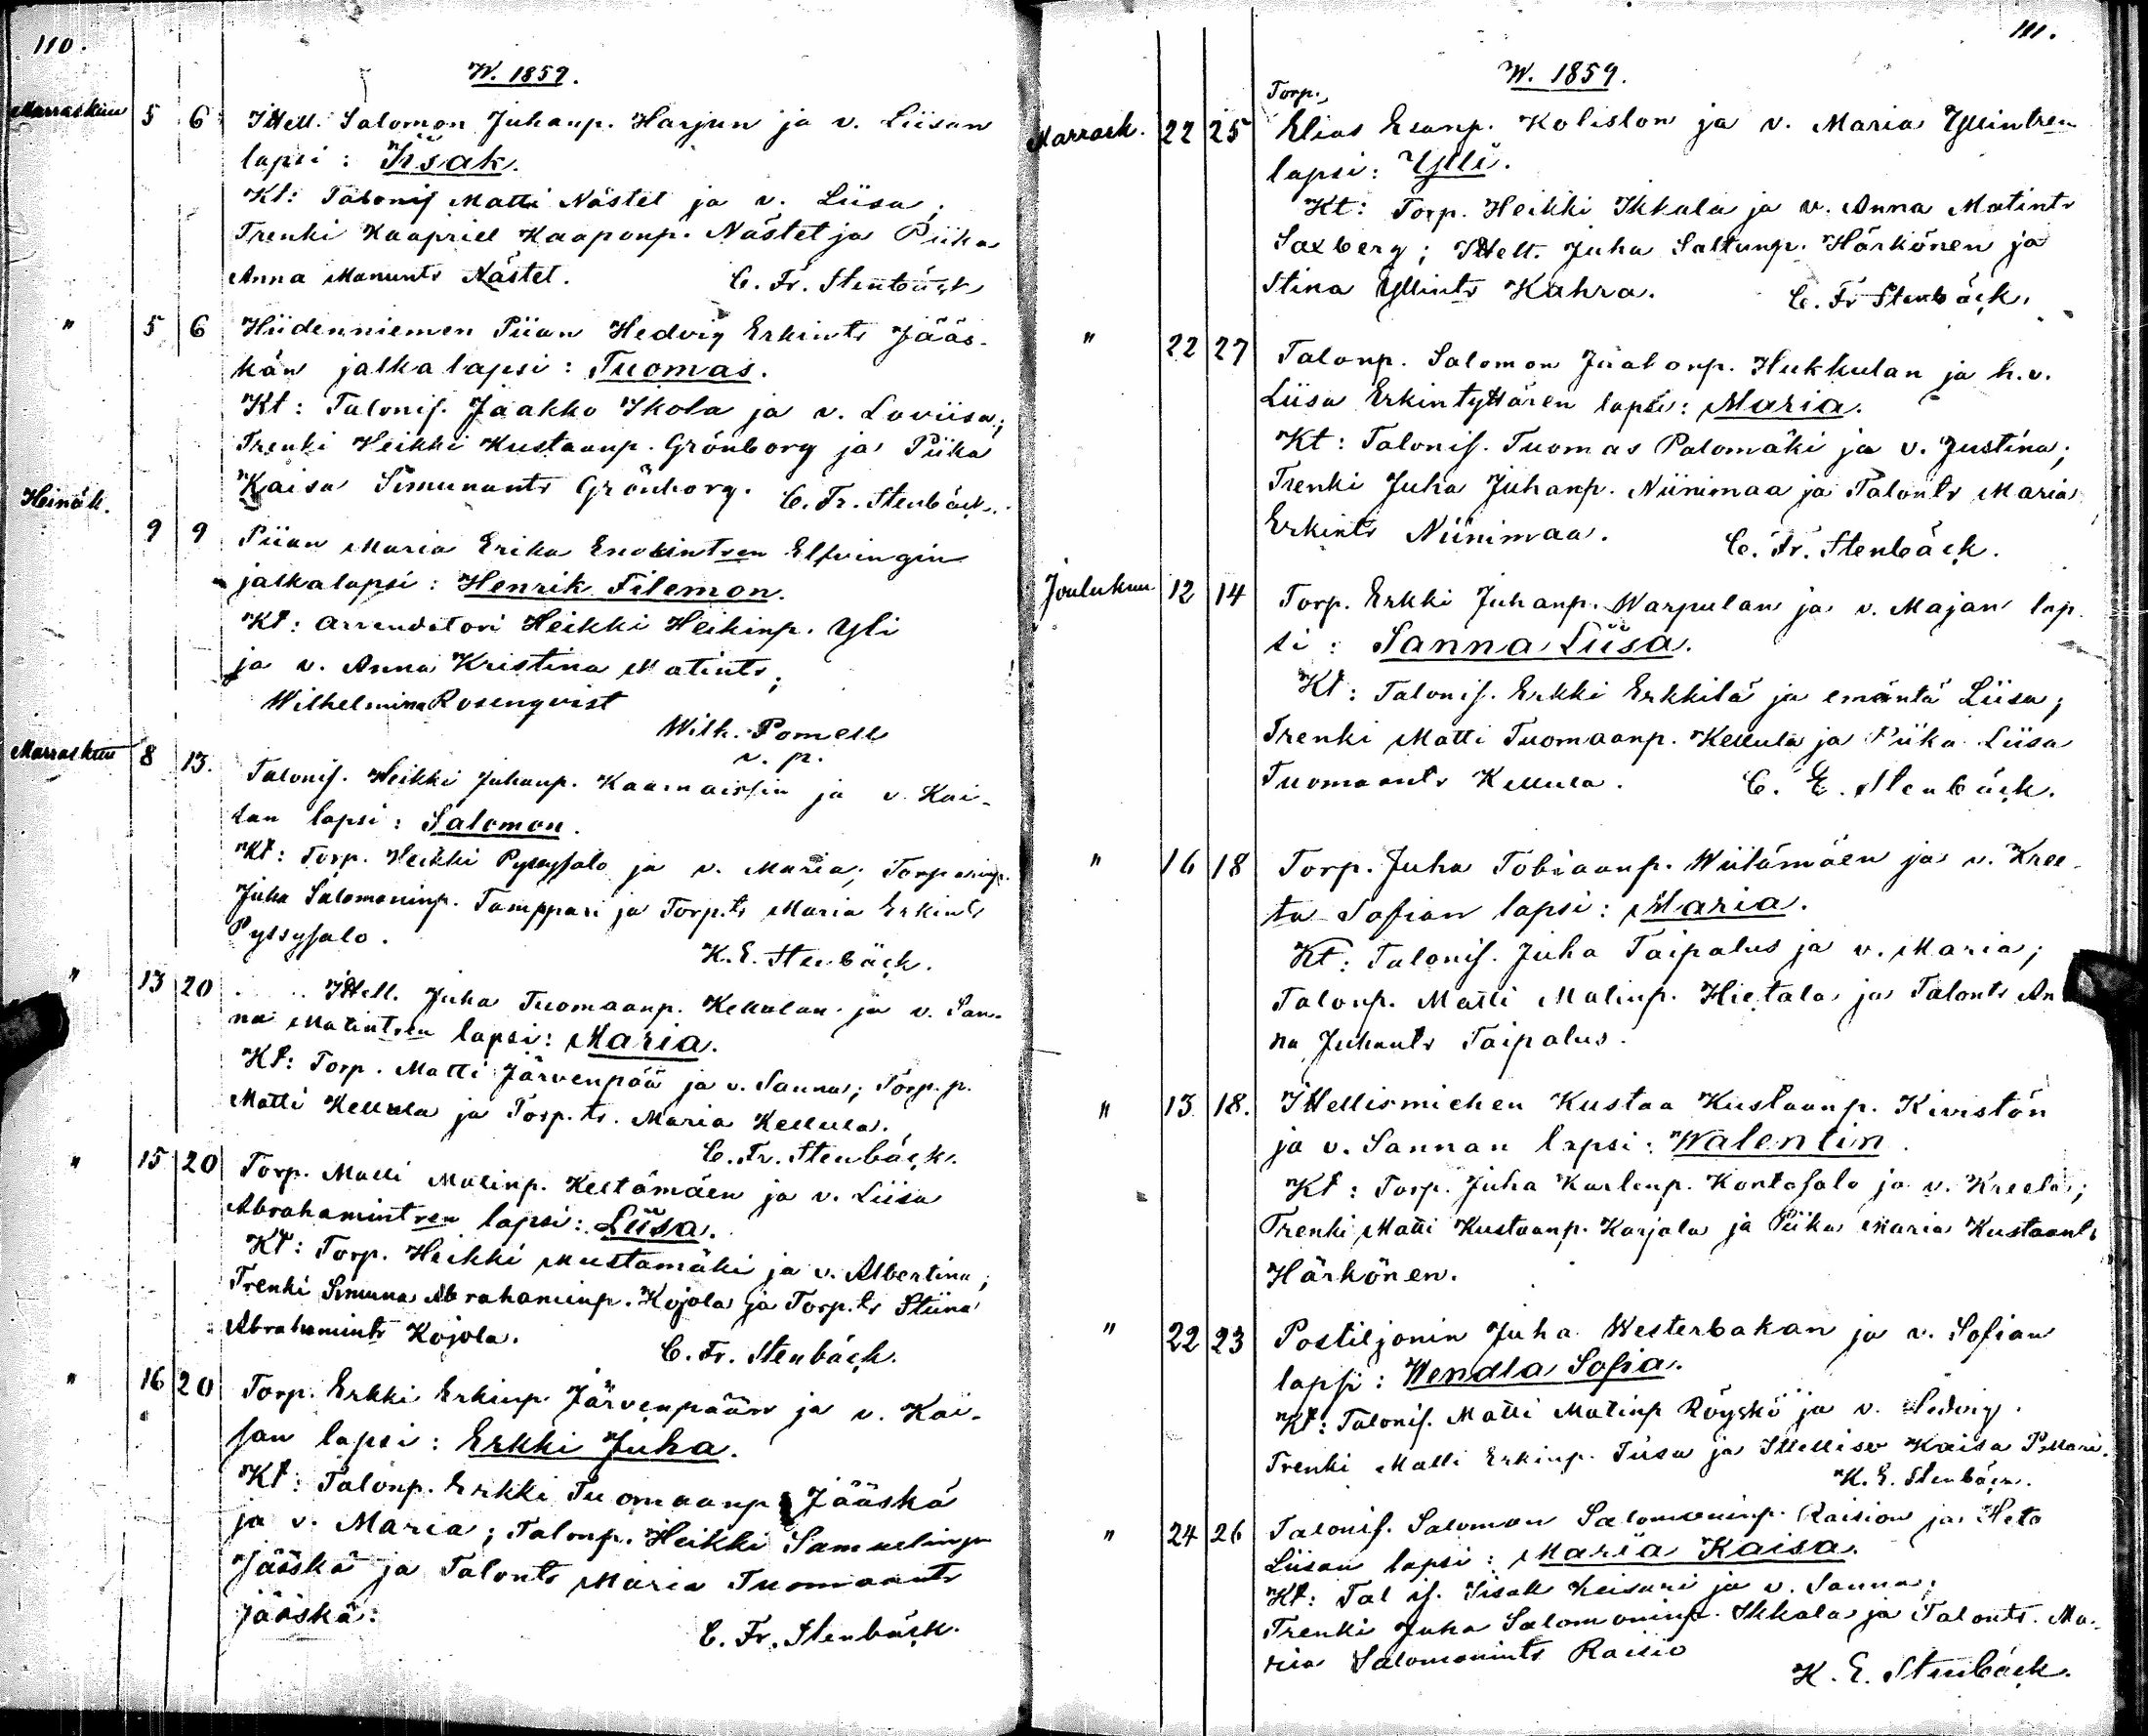 110.
W. 1859.
Marraskuu 5 6 Ittell. Salomon Juhanp. Harjun ja v. Liisan
lapsi: Iisak.
Kt: Talonis Matti Nästel ja v. Liisa;
Trenki Kaapriel Kaaponp. Nästet ja Piika
Anna Manunts Nästet. C. Fr. Stenbäck
" 5 6 Hiidenniemen Piian Hedvig Erkints Jääs-
kän jalkalapsi: Tuomas.
Kt: Talonis. Jaakko Ikola ja v. Loviisa;
Trenki Heikki Kustaanp. Grönborg ja Piika
Kaisa Simunants Grönborg. C. Fr. Stenbäck.
Heinäk.
9 9 Piian Maria Erika Enokintren Elfvingin
jalkalapsi: Henrik Filemon.
Kt: Arrendatori Heikki Heikinp. Yli
ja v. Anna Kristina Matints;
Wilhelmina Rosenqvist
Wilh. Pomell
v. p.
Marraskuu 8 13. Talonis. Heikki Juhanp. Kaarnaisen ja v. Kai-
san lapsi: Salomon.
Kt: Torp. Heikki Pyssysalo ja v. Maria; Torparinp.
Juha Salomoninp. Tamppari ja Torp.ts Maria Erkints
Pyssysalo.
K. E. Stenbäck.
" 13 20 Ittell. Juha Tuomaanp. Kellulan ja v. San-
na Matintren lapsi: Maria.
Kt: Torp. Matti Järvenpää ja v. Sanna; Torp. p.
Matti Kellula ja Torp. ts. Maria Kellula.
C. Fr. Stenbäck.
" 15 20 Torp. Matti Matinp. Keltämäen ja v. Liisa
Abrahamintren lapsi: Liisa.
Kt: Torp. Heikki Mustamäki ja v. Albertina;
Trenki Simuna Abrahaminp. Kojola ja Torp.ts Stiina
Abrahamints Kojola.
C. Fr. Stenbäck.
" 16 20 Torp. Erkki Erkinp. Järvenpään ja v. Kai-
san lapsi: Erkki Juha.
Kt: Talonp. Erkki Tuomaanp. Jääskä
ja v. Maria; Talonp. Heikki Samuelinp
Jääskä ja Talonts Maria Tuomaants
Jääskä.
C. Fr. Stenbäck.
111.
W. 1859.
Torp.
Marrask. 22 25 Elias Esanp. Koliston ja v. Maria Yllintren
lapsi: Ylli.
Kt: Torp. Heikki Ikkala ja v. Anna Matints
Saxberg; Ittell. Juha Saltunp. Härkönen ja
Stina Yllints Kahra. C. Fr Stenbäck.
" 22 27 Talonp. Salomon Jaakonp. Hukkulan ja h.v.
Liisa Erkintyttären lapsi: Maria.
Kt: Talonis. Tuomas Palomäki ja v. Justina;
Trenki Juha Juhanp. Niinimaa ja Talonts Maria
Erkints Niinimaa. C. Fr. Stenbäck.
Joulukuu 12 14 Torp. Erkki Juhanp. Warpulan ja v. Majan lap-
si: Sanna Liisa.
Kt: Talonis. Erkki Erkkilä ja emäntä Liisa;
Trenki Matti Tuomaanp. Kellula ja Piika Liisa
Tuomaants Kellula. C. E. Stenbäck.
" 16 18 Torp. Juha Tobiaanp. Wiitämäen ja v. Kree-
ta Sofian lapsi: Maria.
Kt: Talonis. Juha Taipalus ja v. Maria;
Talonp. Matti Matinp. Hietala ja Talonts An
na Juhants Taipalus.
" 13 18. Ittellismiehen Kustaa Kustaanp. Kivistön
ja v. Sannan lapsi: Walentin.
Kt: Torp. Juha Karlenp. Kontosalo ja v. Kreeta;
Trenki Matti Kustaanp. Karjala ja Piika Maria Kustaants
Härkönen.
" 22 23 Postiljonin Juha Westerbakan ja v. Sofian
lapsi: Wendla Sofia.
Kt: Talonis. Matti Matinp Röyskö ja v. Hedvig.
Trenki Matti Erkinp. Tiisa ja Ittellise Kaisa P. Mari.
K. E. Stenbäck.
" 24 26 Talonis. Salomon Salomoninp. Raision ja Heta
Liisan lapsi: Maria Kaisa.
Kt: Tal is. Iisak Keisari ja v. Sanna;
Trenki Juha Salomoninp. Ikkala ja Talonts. Ma-
ria Salomonints Raisio
K. E. Stenbäck.